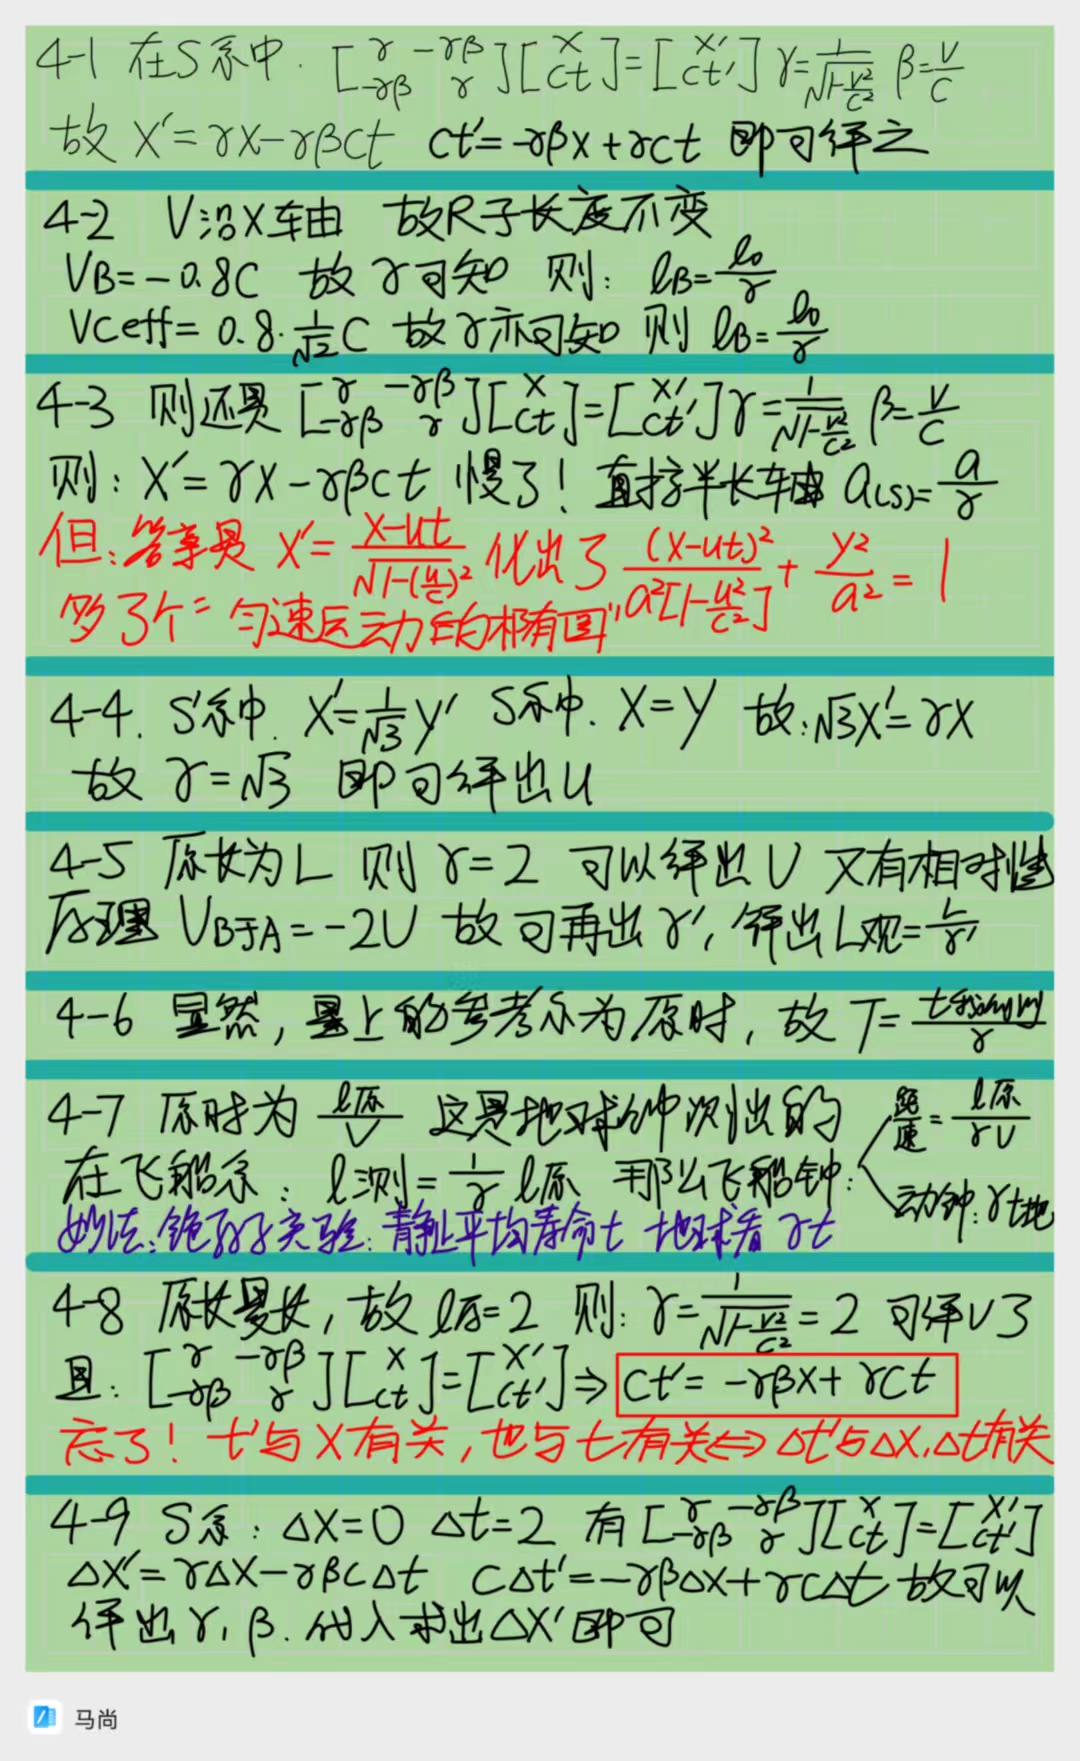 4-1 在S系中. [γ -γβ -γβ γ][x ct]=[x' ct'] γ=1/√(1-v²/c²) β=v/c
故 x'=γx-γβct ct'=-γβx+γct 即可得之
4-2 V沿x轴 故尺子长度不变
VB=-0.8C 故γ可知 则: lB=l₀/γ
VCeff=0.8·1/√2 C 故γ亦可知 则 lB=l₀/γ
4-3 则还是 [γ -γβ -γβ γ][x ct]=[x' ct'] γ=1/√(1-v²/c²) β=v/c
则: x'=γx-γβct 慢了! 直接半长轴 a(s)=a/γ
但:答案是 x'=(x-ut)/√(1-(u/c)²) 化出了 (x-ut)²/a²[1-u²/c²]+y²/a²=1
多了个"匀速运动的椭圆"
4-4. S'系中. x'=1/√3 y' S系中. x=y 故:√3x'=γx
故 γ=√3 即可得出u
4-5 原长为L 则 γ=2 可以得出V 又有相对性
原理 VB于A=-2U 故可再出γ', 得出L观=L/γ'
4-6 显然,星上的参考系为原时, 故 T=/γ
4-7 原时为 l原/V 这是地球钟测出的 距/速=l原/γV
在飞船系: l测=1/γ l原 那么飞船钟: 动钟:γt地
妙法: 实验:静止平均寿命t 地球看γt
4-8 原长最长,故l原=2 则: γ=1/√(1-v²/c²)=2 可得V了
且: [γ -γβ -γβ γ][x ct]=[x' ct']⇒ ct'=-γβx+γct
忘了! t'与x有关,也与t有关⇔Δt'与Δx,Δt有关
4-9 S系: Δx=0 Δt=2 有[γ -γβ -γβ γ][x ct]=[x' ct']
Δx'=γΔx-γβcΔt cΔt'=-γβΔx+γcΔt 故可以
得出γ,β. 代入求出Δx'即可
马尚